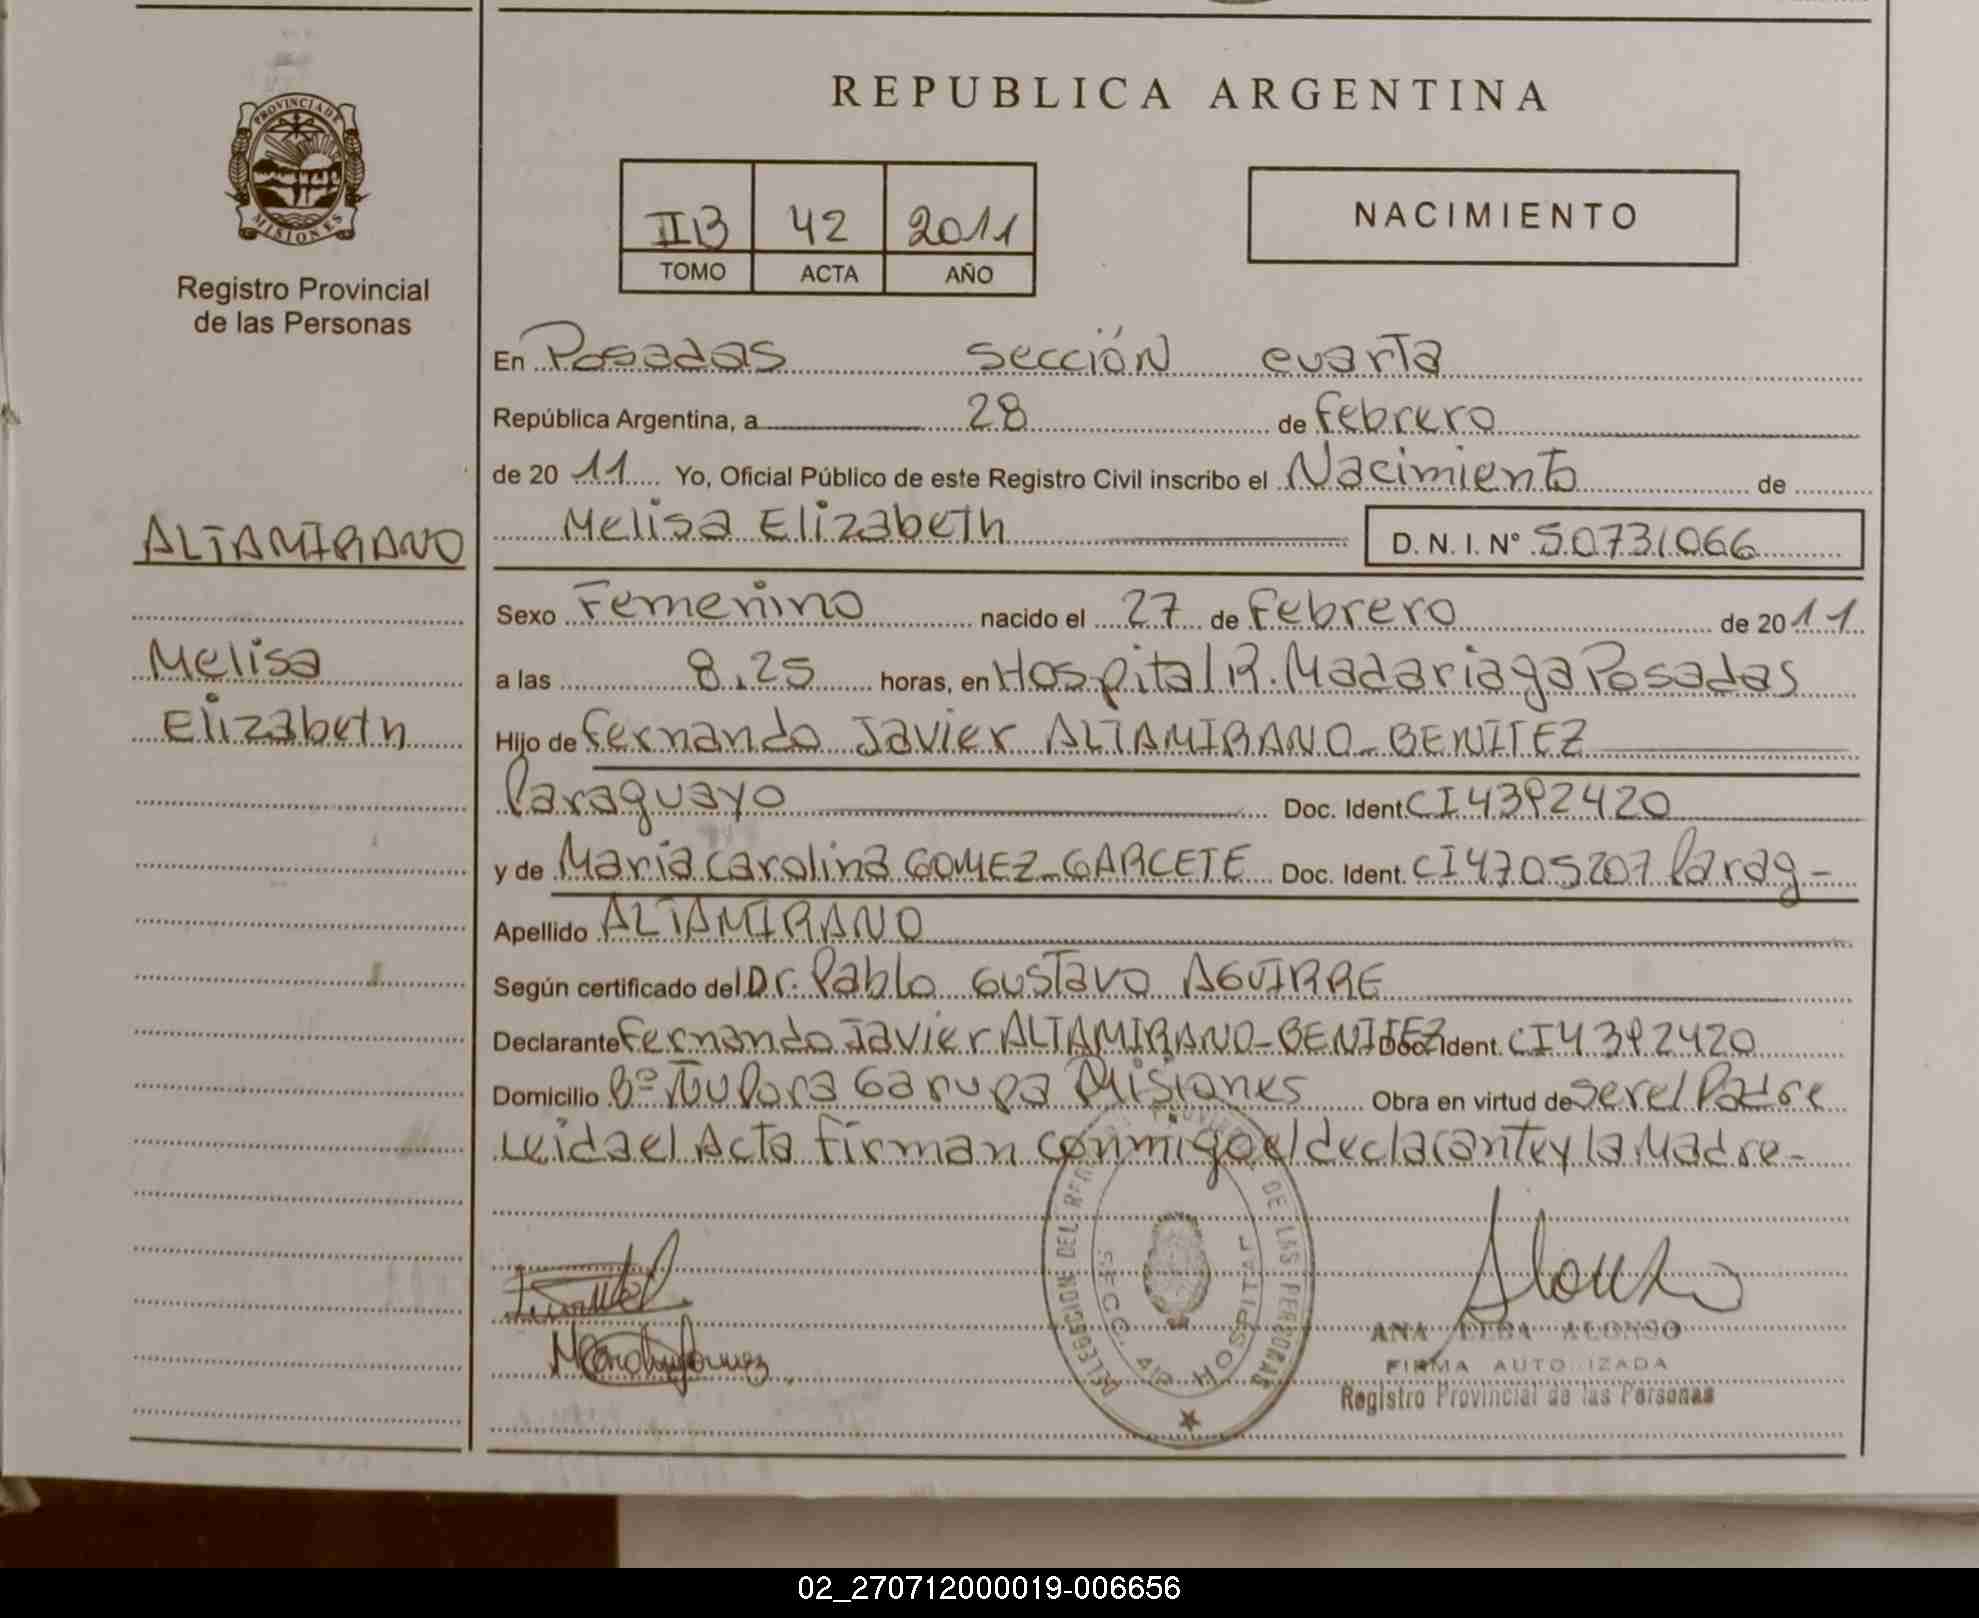 REPUBLICA ARGENTINA
PROVINCIA DE
MISIONES
Registro Provincial
de las Personas
IIB 42 2011
TOMO ACTA AÑO
NACIMIENTO
En Posadas sección cuarta
República Argentina, a 28 de Febrero
de 2011 Yo, Oficial Público de este Registro Civil inscribo el Nacimiento de
Melisa Elizabeth D. N. I. Nº 50731066
ALTAMIRANO
Melisa
Elizabeth
Sexo Femenino nacido el 27 de Febrero de 2011
a las 8.25 horas, en Hospital R. Madariaga Posadas
Hijo de Fernando Javier ALTAMIRANO-BENITEZ
Paraguayo Doc. Ident. CI 4392420
y de Maria Carolina GOMEZ-GARCETE Doc. Ident. CI 4705207 Parag-
Apellido ALTAMIRANO
Según certificado del Dr. Pablo Gustavo AGUIRRE
Declarante Fernando Javier ALTAMIRANO-BENITEZ Doc. Ident. CI 4392420
Domicilio Bº Ñu Pora Garupa Misiones Obra en virtud de ser el Padre
Leida el Acta firman conmigo el declarante y la Madre-
DELEGACION DEL DE LAS PERSONAS
SECC. 4ta HOSPITAL
Alonso
ANA ELDA ALONSO
FIRMA AUTORIZADA
Registro Provincial de las Personas
02_270712000019-006656